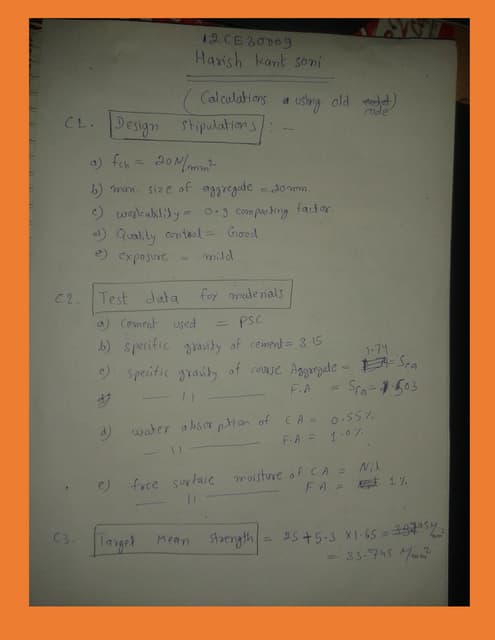 12CE30009
Harish kant soni
( Calculations using old code)
C1. Design stipulations : -
a) fck = 20N/mm²
b) max. size of aggregate = 20mm.
c) workability = 0.9 compacting factor
d) Quality control = Good
e) exposure = mild
C2. Test data for materials
a) Cement used = PSC
b) specific gravity of cement = 3.15
c) specific gravity of coarse Aggregate = 2.74 = Sca
—— 11 —— F.A = Sfa =
d) water absorption of CA = 0.55%
—— 11 —— F.A = 1.0%
e) free surface moisture of CA = Nil
—— 11 —— FA = 1%
C3. Target Mean strength = 25 + 5.3 x 1.65 =
= 33.745 N/mm²